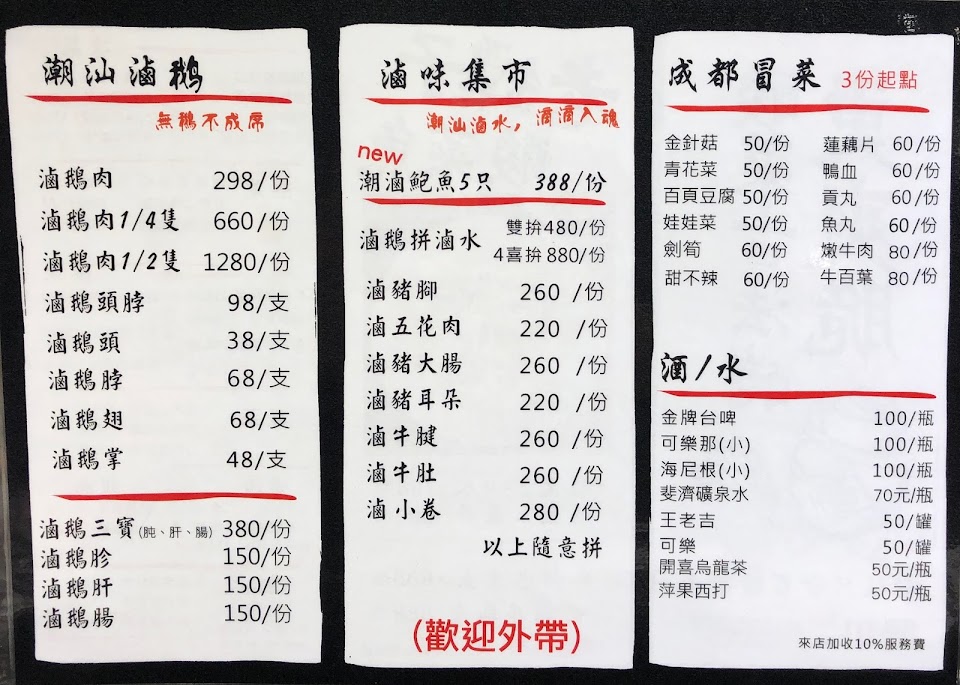 潮汕滷鵝
無鵝不成席
滷鵝肉 298/份
滷鵝肉1/4隻 660/份
滷鵝肉1/2隻 1280/份
滷鵝頭脖 98/支
滷鵝頭 38/支
滷鵝脖 68/支
滷鵝翅 68/支
滷鵝掌 48/支
滷鵝三寶(肫、肝、腸) 380/份
滷鵝胗 150/份
滷鵝肝 150/份
滷鵝腸 150/份
滷味集市
潮汕滷水，滴滴入魂
new
潮滷鮑魚5只 388/份
滷鵝拼滷水 雙拚480/份
4喜拚880/份
滷豬腳 260 /份
滷五花肉 220 /份
滷豬大腸 260 /份
滷豬耳朵 220 /份
滷牛腱 260 /份
滷牛肚 260 /份
滷小卷 280 /份
以上隨意拼
(歡迎外帶)
成都冒菜 3份起點
金針菇 50/份 蓮藕片 60/份
青花菜 50/份 鴨血 60/份
百頁豆腐 50/份 貢丸 60/份
娃娃菜 50/份 魚丸 60/份
劍筍 60/份 嫩牛肉 80/份
甜不辣 60/份 牛百葉 80/份
酒/水
金牌台啤 100/瓶
可樂那(小) 100/瓶
海尼根(小) 100/瓶
斐濟礦泉水 70元/瓶
王老吉 50/罐
可樂 50/罐
開喜烏龍茶 50元/瓶
萍果西打 50元/瓶
來店加收10%服務費